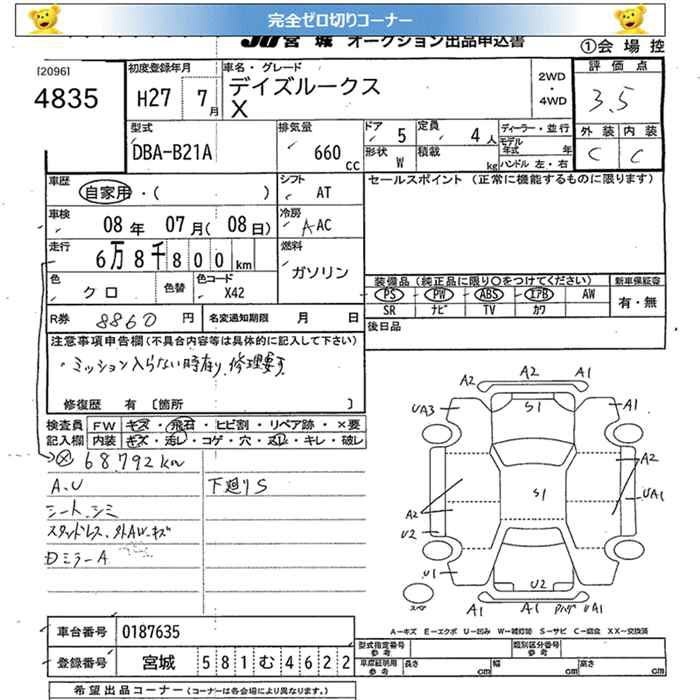 完全ゼロ切りコーナー
JU宮城 オークション出品申込書
①会場控
[2096]
4835
初度登録年月
H27 7月
車名・グレード
デイズルークス
X
2WD
・
4WD
評価点
3.5
外装 内装
C C
型式
DBA-B21A
排気量
660 cc
ドア 5
形状 W
定員 4人
積載 kg
ディーラー・並行
モデル年式 年
ハンドル 左・右
車歴
自家用・( )
シフト
AT
セールスポイント (正常に機能するものに限ります)
車検
08年 07月(08日)
冷房
AAC
走行
6万8千800km
燃料
ガソリン
色
クロ
色替
色コード
X42
装備品(純正品に限り○をつけてください)
新車保証書
PS PW ABS エアB AW
SR ナビ TV カワ
有・無
R券 8860円
名変通知期限 月 日
後日品
注意事項申告欄(不具合内容等は具体的に記入して下さい)
・ミッション入らない時有り、修理要す
修復歴 有 [箇所 ]
検査員記入欄
FW キズ・飛石・ヒビ割・リペア跡・×要
内装 キズ・汚レ・コゲ・穴・スレ・キレ・破レ
68,792km
A.U
下廻りS
シート、シミ
スタッドレス、外AWキズ
Dミラ-A
A2 A2 A1
UA3 S1 A1
A2
S1
UA1
A2
U2
U1 U2
スペア
A1 A1 UA1
A-キズ E-エクボ U-凹み W-補修跡 S-サビ C-腐食 XX-交換済
車台番号 0187635
登録番号 宮城 581 む 4622
型式指定番号 参考
類別区分番号 参考
車庫証明用 参考
長さ cm 幅 cm 高さ cm
希望出品コーナー(コーナーは各会場により異なります。)